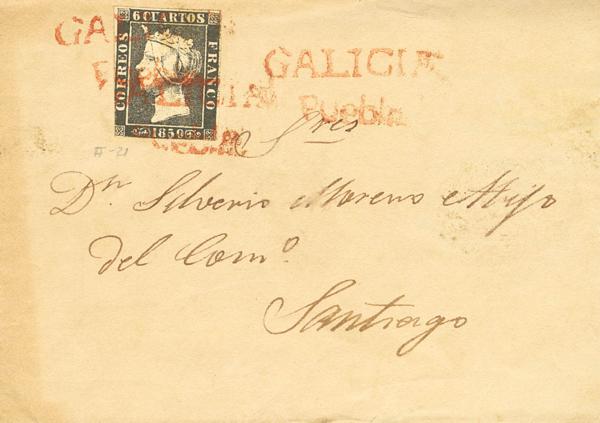 6 CUARTOS
CORREOS
FRANCO
1850
GALICIA
Puebla
A-21
Sres
Dn. Silverio Moreno e Hijo
del Como.
Santiago